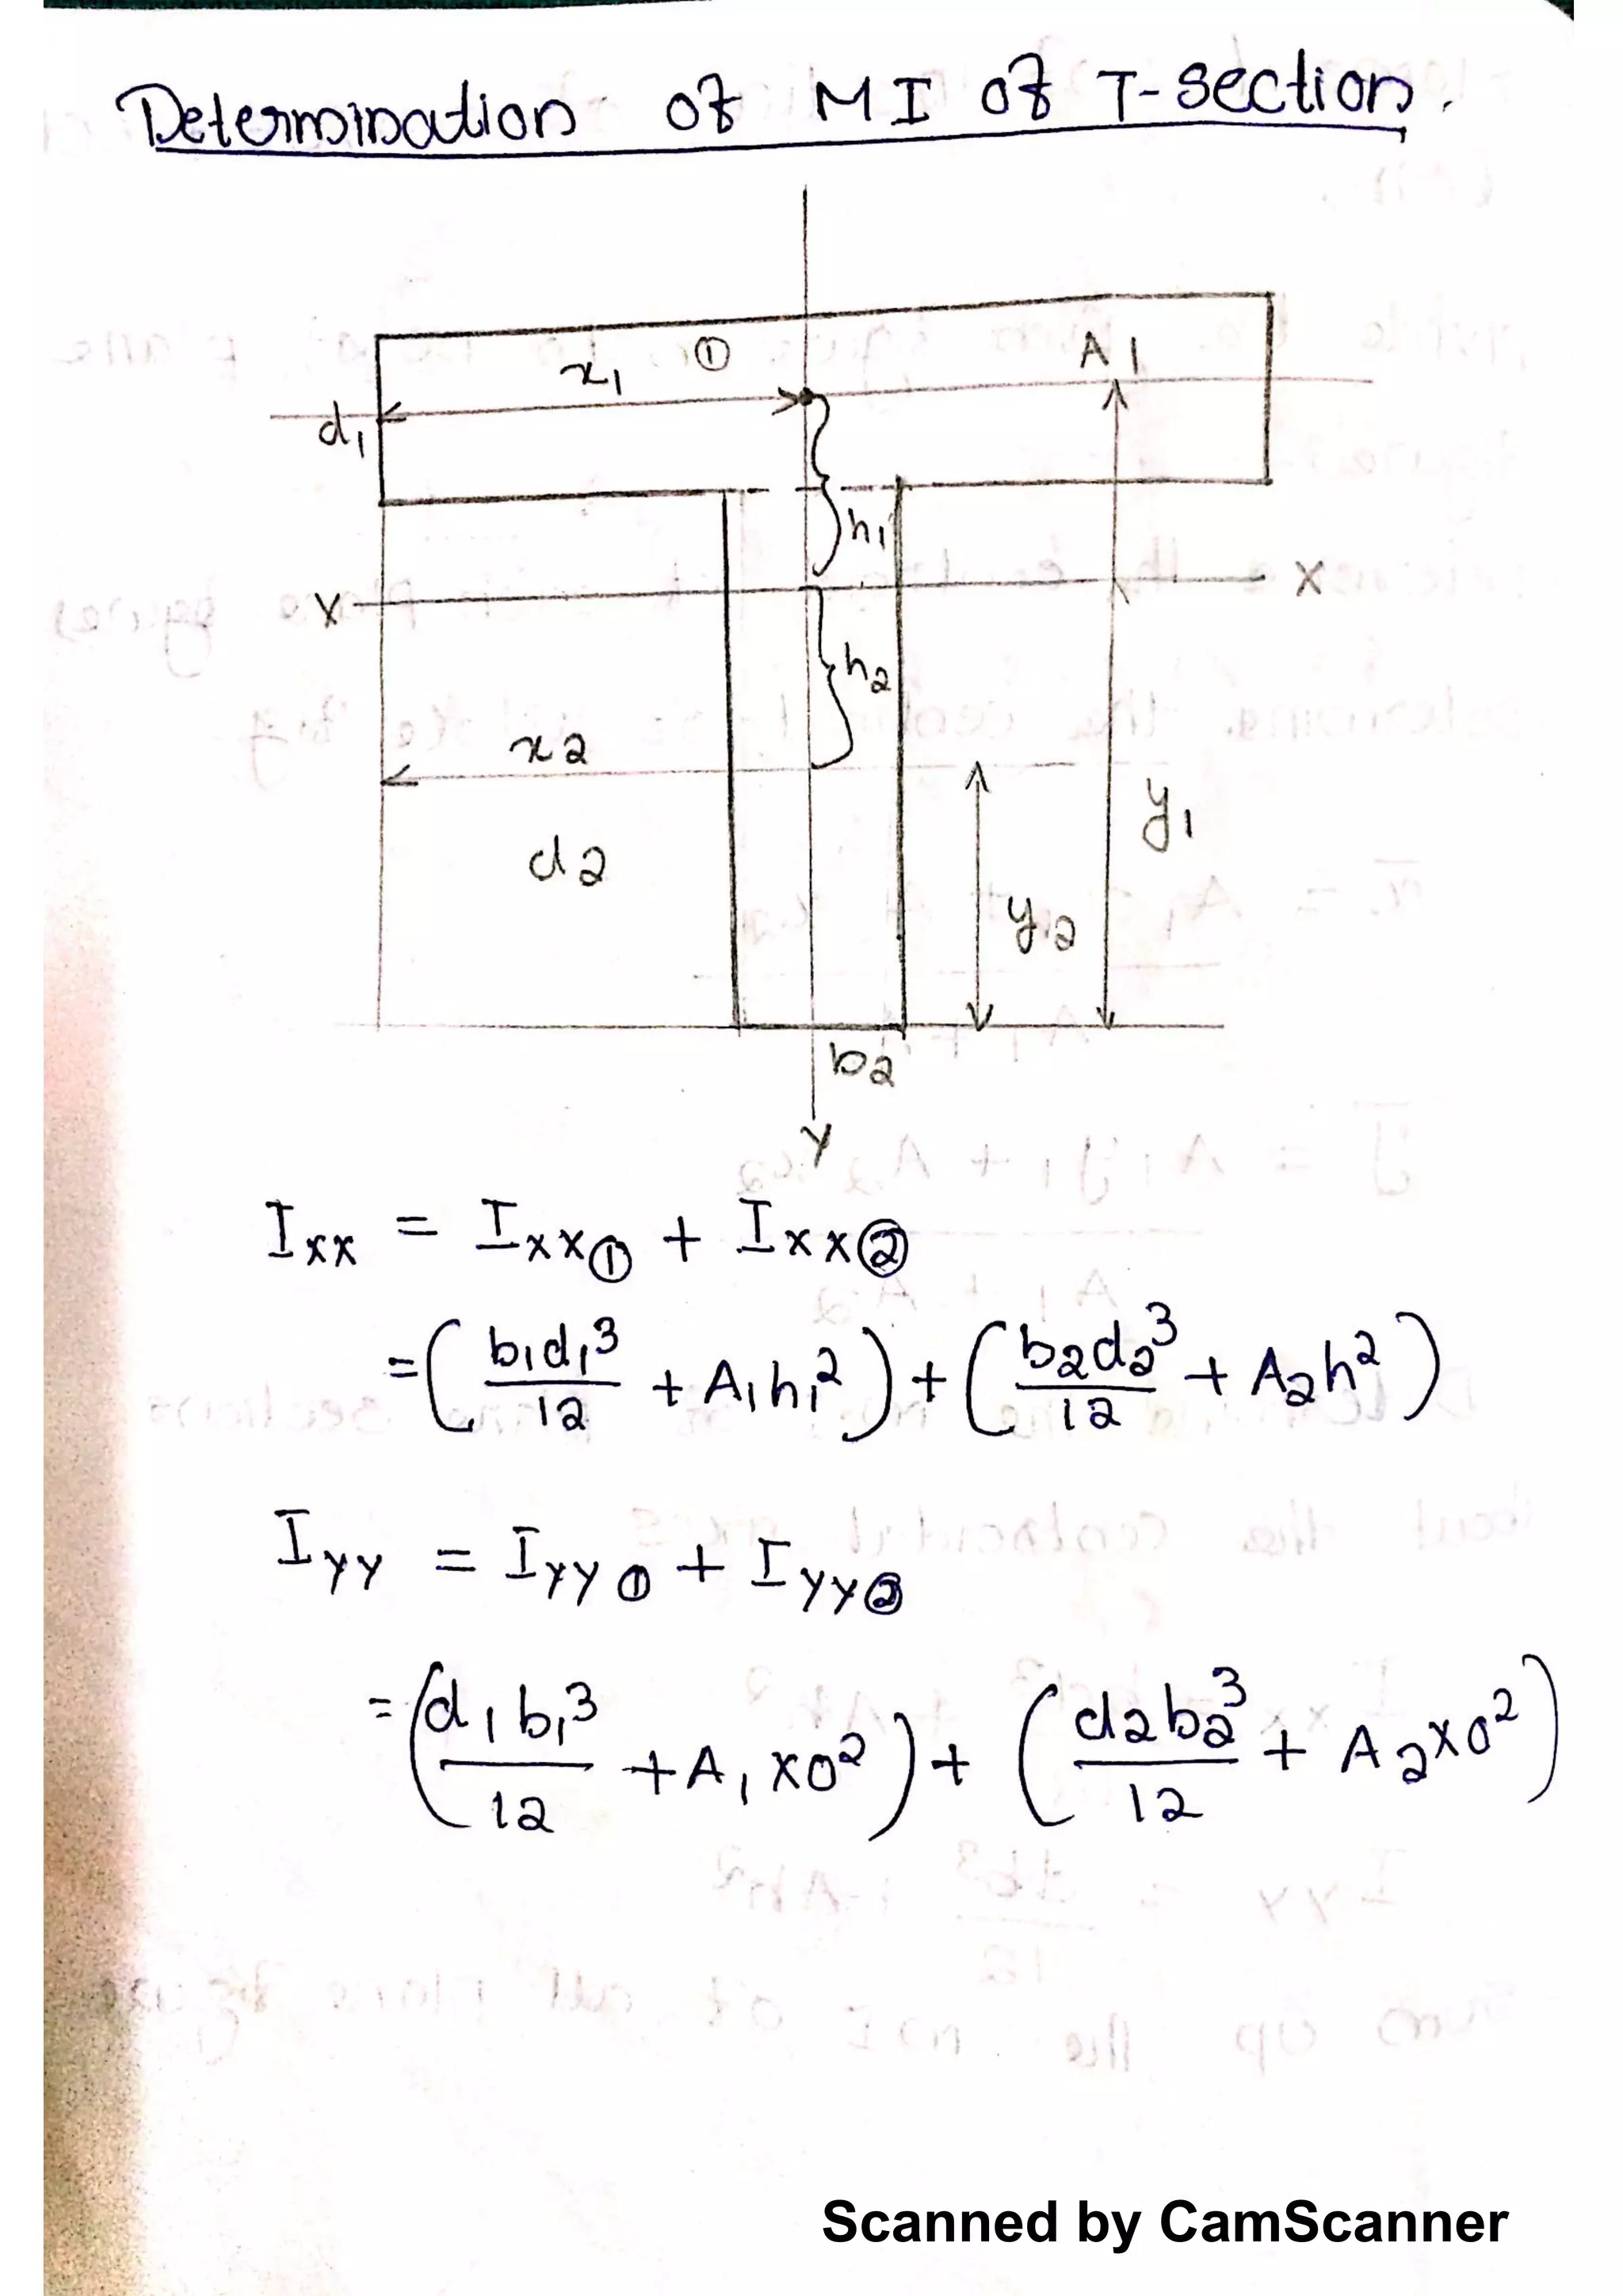 Determination of MI of T-section.
① A1
x1
d1
h1
X X
h2
x2
y1
d2
y2
b2
Y
Ixx = Ixx① + Ixx②
= (b1d1³/12 + A1h1²) + (b2d2³/12 + A2h²)
Iyy = Iyy① + Iyy②
= (d1b1³/12 + A1×0²) + (d2b2³/12 + A2×0²)
Scanned by CamScanner